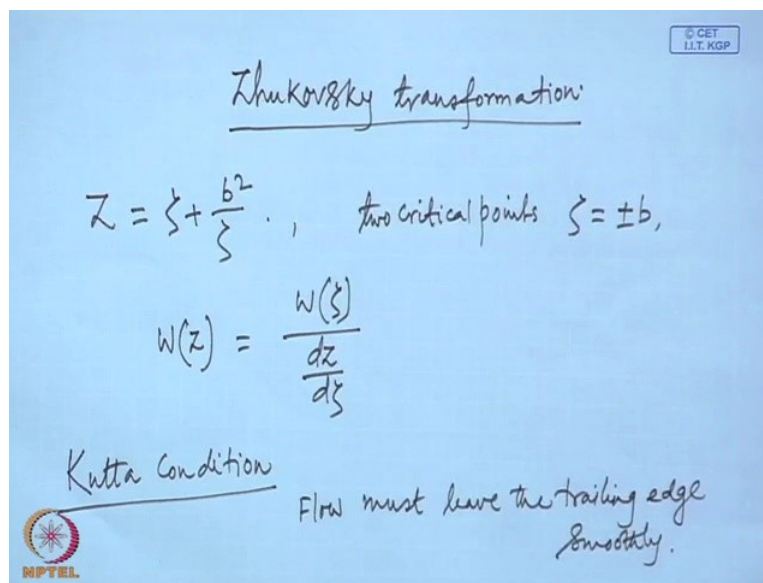 © CET
I.I.T. KGP
Zhukovsky transformation.
Z = ζ + b²/ζ ., two critical points ζ = ±b,
W(z) = W(ζ) / (dz/dζ)
Kutta Condition
Flow must leave the trailing edge
smoothly.
NPTEL